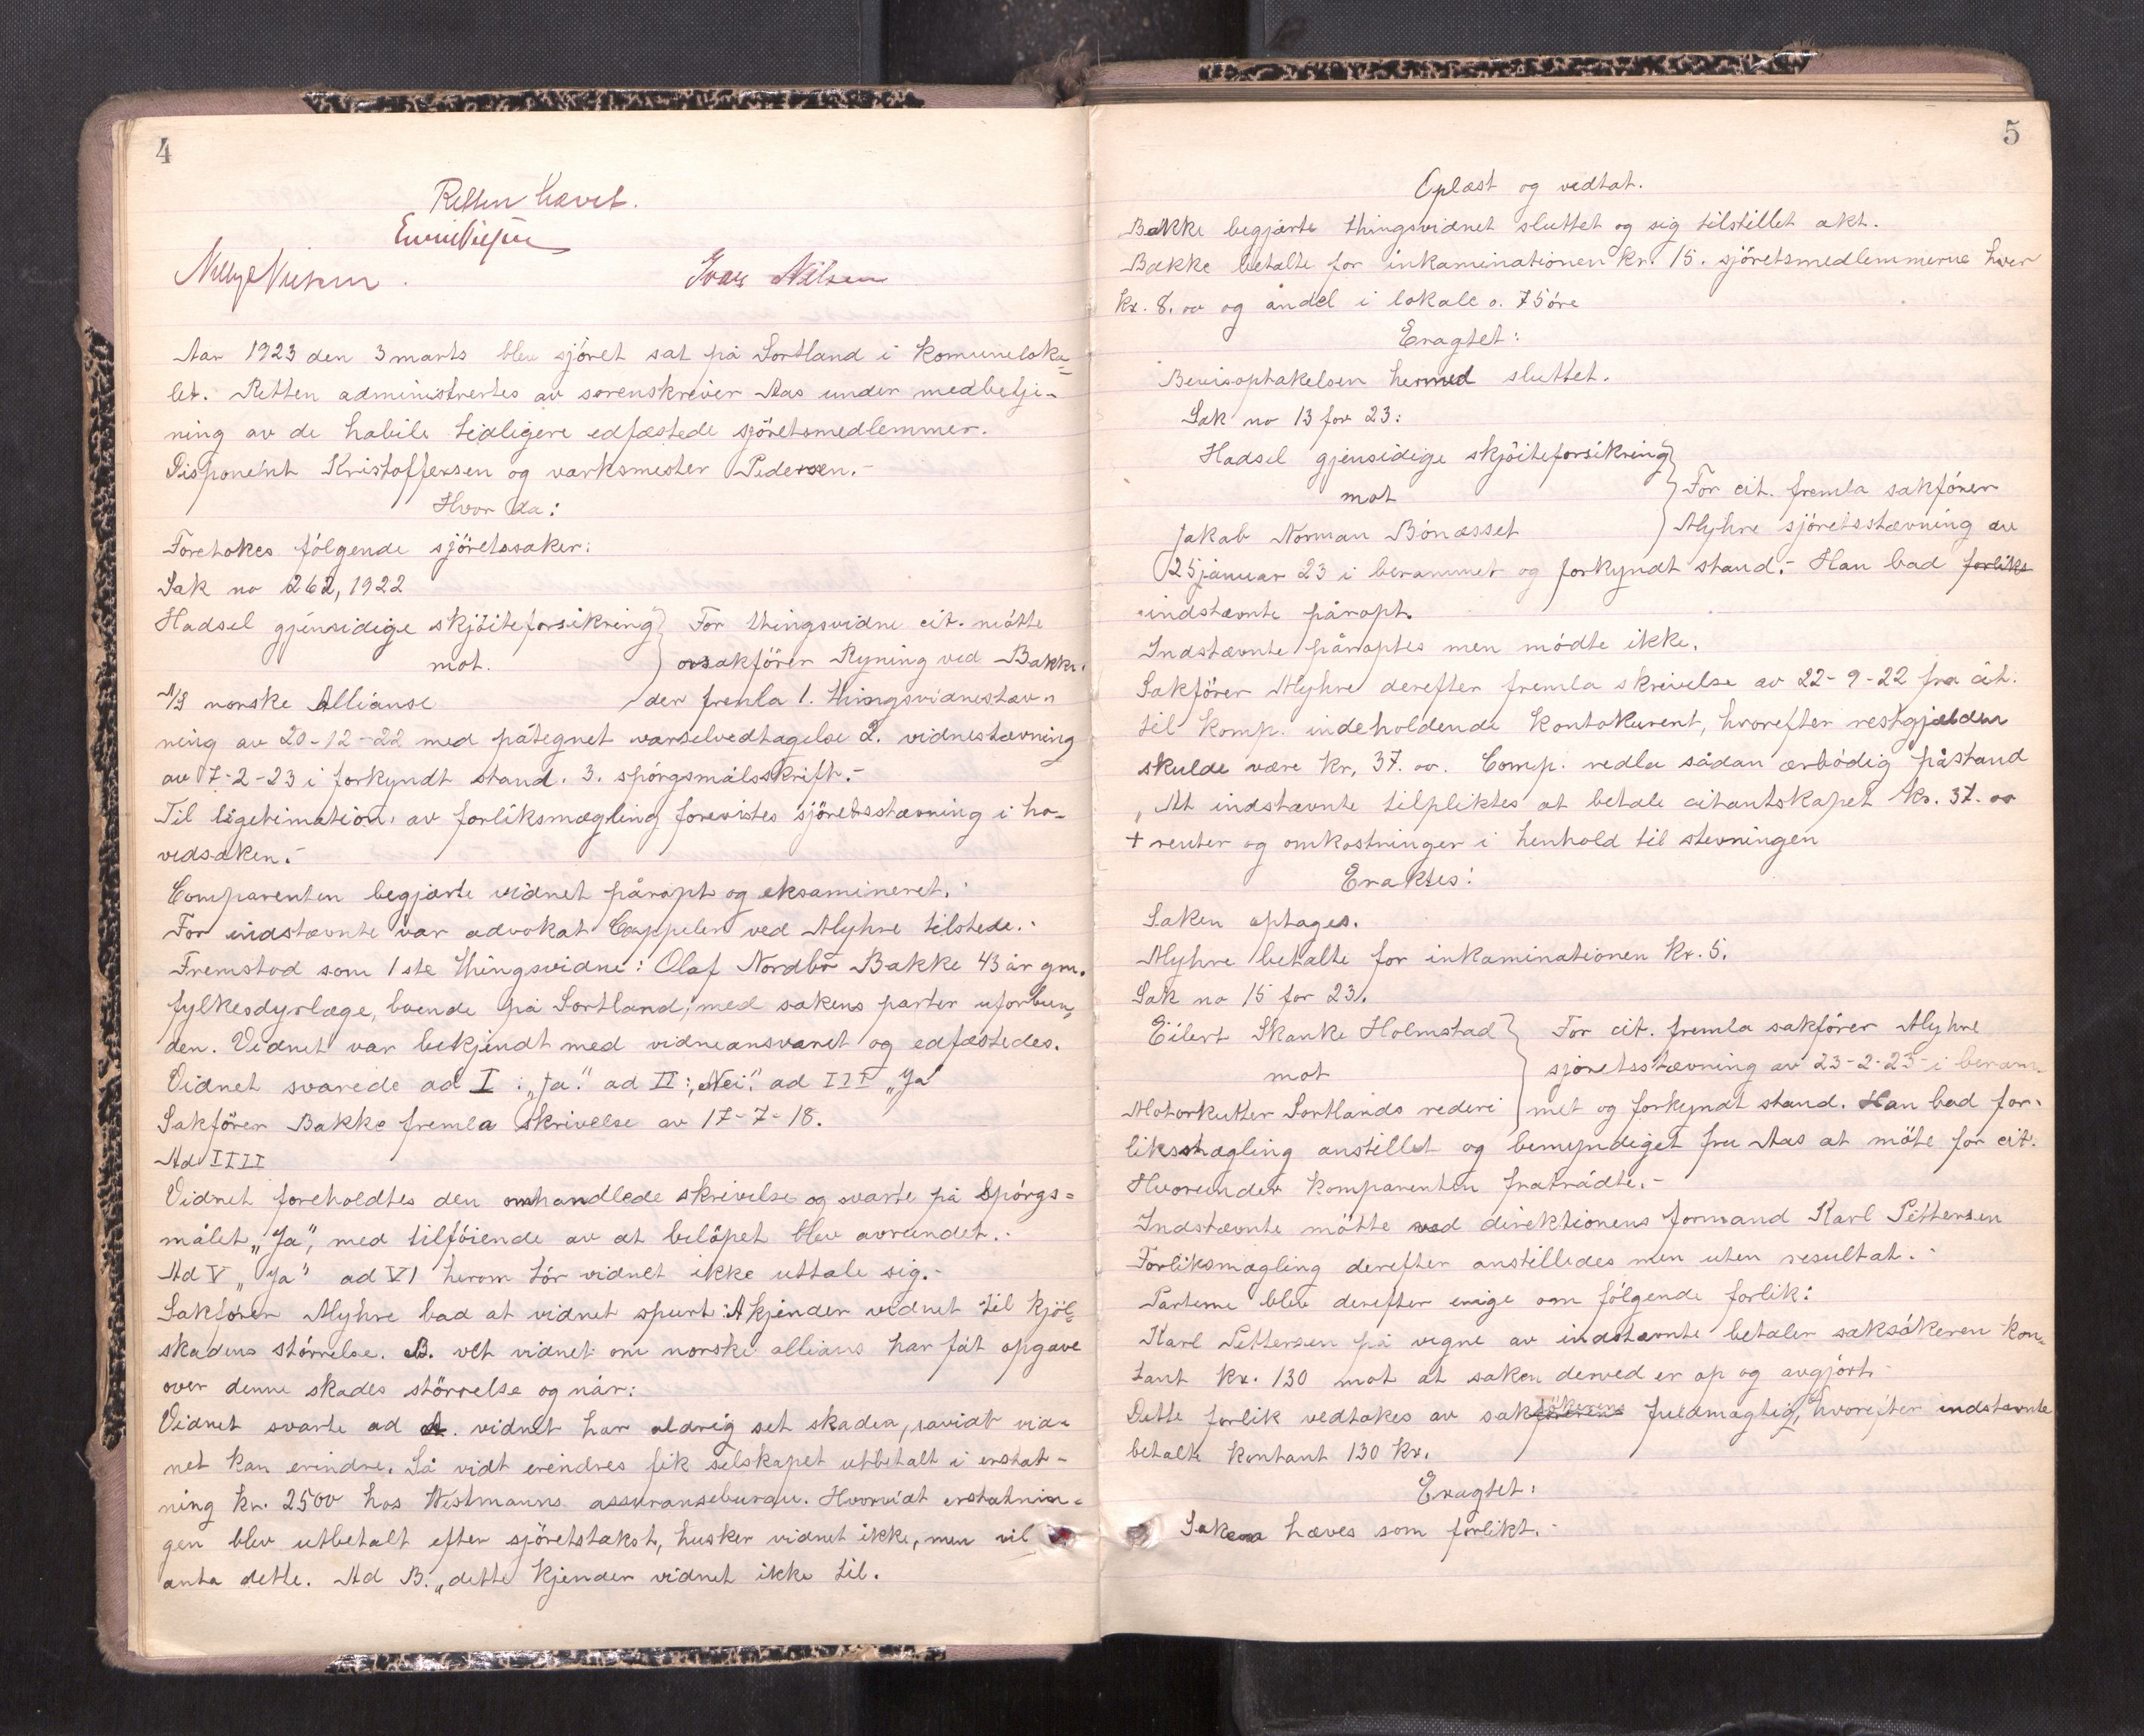 4
Retten hævet.
Ivar Nilsen
Aar 1923 den 3 marts blev sjöret sat på Sortland i Komuneloka=
let. Retten administrertes av sorenskriver Aas under medbetje-
ning av de habile tidligere edfæstede sjöretsmedlemmer.
Disponent Kristoffersen og værksmester Pedersen.-
Hvor da:
Foretokes fölgende sjöretssaker:
Sak no 262, 1922
Hadsel gjensidige skjöiteforsikring } For thingsvidne cit. mötte
mot. } o.r.sakförer Ryning ved Bakke.
A/S norske Allianse der fremla 1. thingsvidnestæv-
ning av 20-12-22 med påtegnet varselvedtagelse 2. vidnestævning
av 7-2-23 i forkyndt stand. 3. spörgsmålsskrift.-
Til ligetimation av forliksmægling forevistes sjöretsstævning i ho-
vedsaken.-
Comparenten begjærte vidnet påropt og eksamineret.-
For indstævnte var advokat Cappelen ved Myhre tilstede.-
Fremstod som 1ste thingsvidne: Olaf Nordbö Bakke 43 år gm.
fylkesdyrlæge, boende på Sortland, med sakens parter uforbun-
den. Vidnet var bekjendt med vidneansvaret og edfæstedes.
Vidnet svarede ad I: „Ja." ad II: „Nei". ad III „Ja"
Sakförer Bakke fremla skrivelse av 17-7-18.
Ad IIII
Vidnet foreholdtes den omhandlede skrivelse og svarte på spörgs=
målet „Ja", med tilföiende av at belöpet blev avrundet.-
Ad V „Ja" ad VI herom tör vidnet ikke uttale sig.-
Sakförer Myhre bad at vidnet spurt: A kjender vidnet til kjöl-
skadens störrelse. B. vet vidnet om norske allians har fåt opgave
over denne skades störrelse og når:
Vidnet svarte ad A. vidnet har aldrig set skaden, såvidt vid-
net kan erindre. Så vidt erindres fik selskapet utbetalt i erstat-
ning kr. 2500 hos Westmanns assuransebureau. Hvorvidt erstatnin-
gen blev utbetalt efter sjöretstakst, husker vidnet ikke, men vil
anta dette. Ad B. „dette kjender vidnet ikke til.
5
Oplæst og vedtat.
Bakke begjærte thingsvidnet sluttet og sig tilstillet akt.
Bakke betalte for inkaminationen kr. 15. sjöretsmedlemmerne hver
kr. 8.oo og andel i lokale o. 75 öre
Eragtet:
Bevisoptakelsen hermed sluttet.
Sak no 13 for 23:
Hadsel gjensidige skjöiteforsikring }
mot } For cit. fremla sakförer
Jakab Norman Bönæsset } Myhre sjöretsstævning av
25 januar 23 i berammet og forkyndt stand.- Han bad forliks
indstævnte påropt.
Indstævnte påroptes men mödte ikke.
Sakförer Myhre derefter fremla skrivelse av 22-9-22 fra cit.
til komp. indeholdende kontokurent, hvorefter restgjælden
skulde være kr. 37.oo. Comp. nedla sådan ærbödig påstand
„At indstævnte tilpliktes at betale citantskapet kr. 37.oo
+ renter og omkostninger i henhold til stevningen
Eraktes:
Saken optages.
Myhre betalte for inkaminationen kr. 5.
Sak no 15 for 23.
Eilert Skanke Holmstad } For cit. fremla sakförer Myhre
mot } sjöretsstævning av 23-2-23 i beram-
Motorkutter Sortlands rederi } met og forkyndt stand. Han bad for-
liksmægling anstillet og bemyndiget fru Aas at möte for cit.
Hvorunder komparenten fratrådte.-
Indstævnte mötte ved direktionens formand Karl Pettersen
Forliksmægling derefter anstilledes men uten resultat.-
Parterne blev derefter enige om fölgende forlik:
Karl Pettersen på vegne av indstævnte betaler saksökeren kon-
tant kr. 130 mot at saken derved er op og avgjort.
Dette forlik vedtakes av saksökerens fuldmægtig, hvorefter indstævnte
betalte kontant 130 kr.
Eragtet:
Saken hæves som forlikt.-